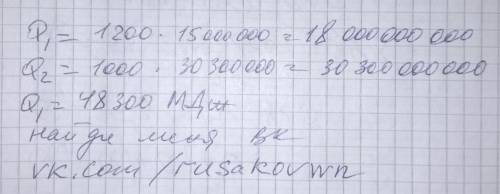 Q₁ = 1200 · 15000000 = 18 000 000 000
Q₂ = 1000 · 30 300 000 = 30 300 000 000
Q₁ = 48 300 МДж
найди меня вк
vk.com/rusakovwn